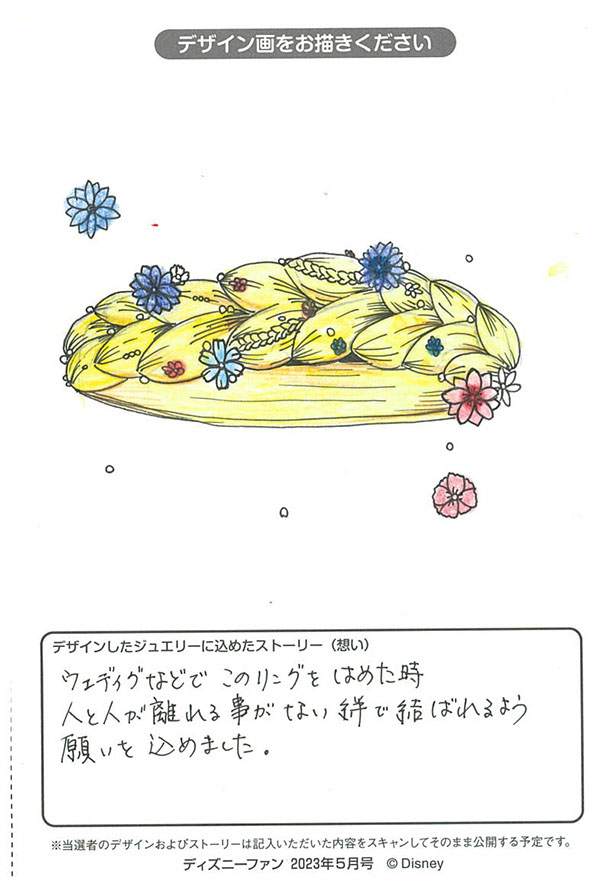 デザイン画をお描きください
デザインしたジュエリーに込めたストーリー(想い)
ウェディグなどで このリングを はめた時
人と人が離れる事がない 絆で結ばれるよう
願いを 込めました。
※当選者のデザインおよびストーリーは記入いただいた内容をスキャンしてそのまま公開する予定です。
ディズニーファン 2023年5月号 ©Disney